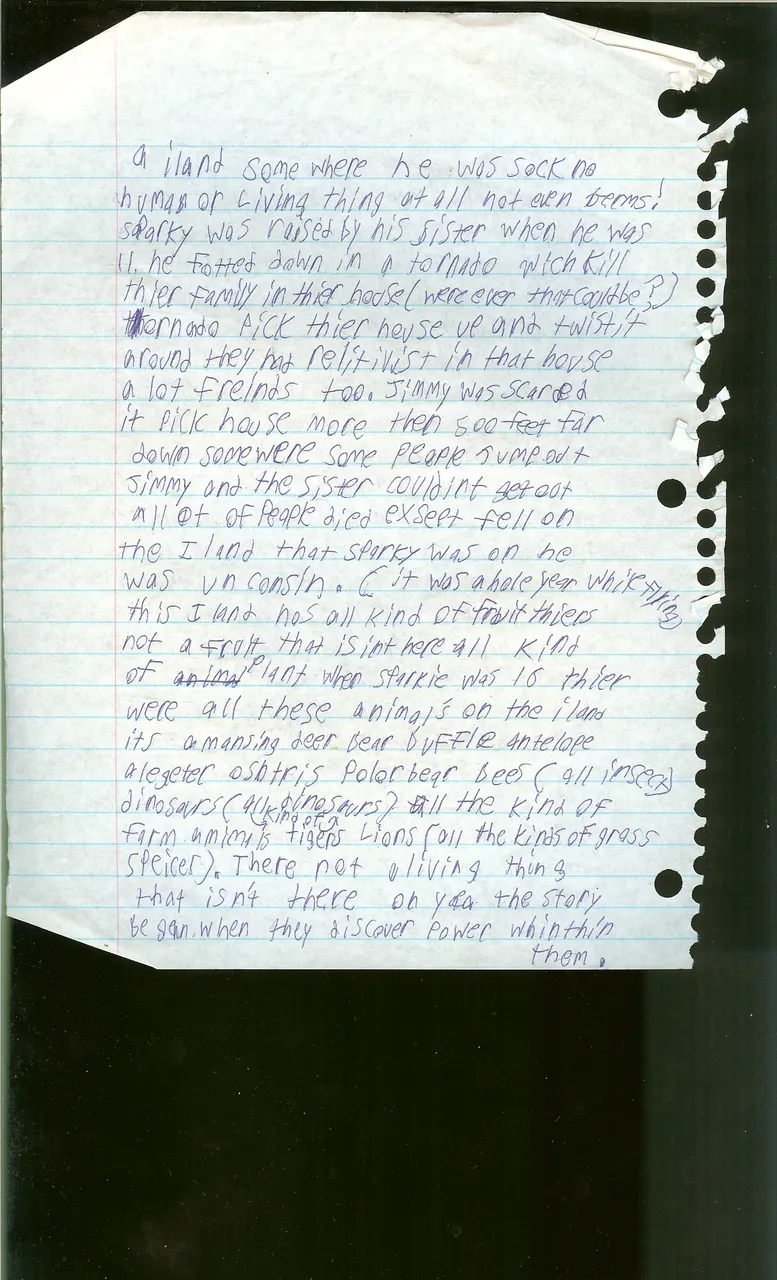 a iland some where he was sock no
human or Living thing at all not even germs!
sparky was raised by his sister when he was
11. he fotted down in a tornado wich kill
thier family in thier house (were ever that could be?)
tornado pick thier house up and twist it
around they had relitivist in that house
a lot freinds too. Jimmy was scared
it pick house more then 500 feet far
down somewere some people jump out
Jimmy and the sister couldint get out
all ot of people died exsept fell on
the Iland that sparky was on he
was un consin. (it was a hole year while flying)
this Iland has all kind of fruit thiers
not a fruit that isint here all kind
of animal plant when sparkie was 16 thier
were all these animals on the iland
its amansing deer bear buffle antelope
alegeter oshtris Polor bear bees (all insect)
dinosaurs (all kind of dinosaurs) all the kind of
farm animals tigers Lions (all the kinds of grass
speicer). There not a living thing
that isn't there oh yea the story
began when they discover power whinthin
them.